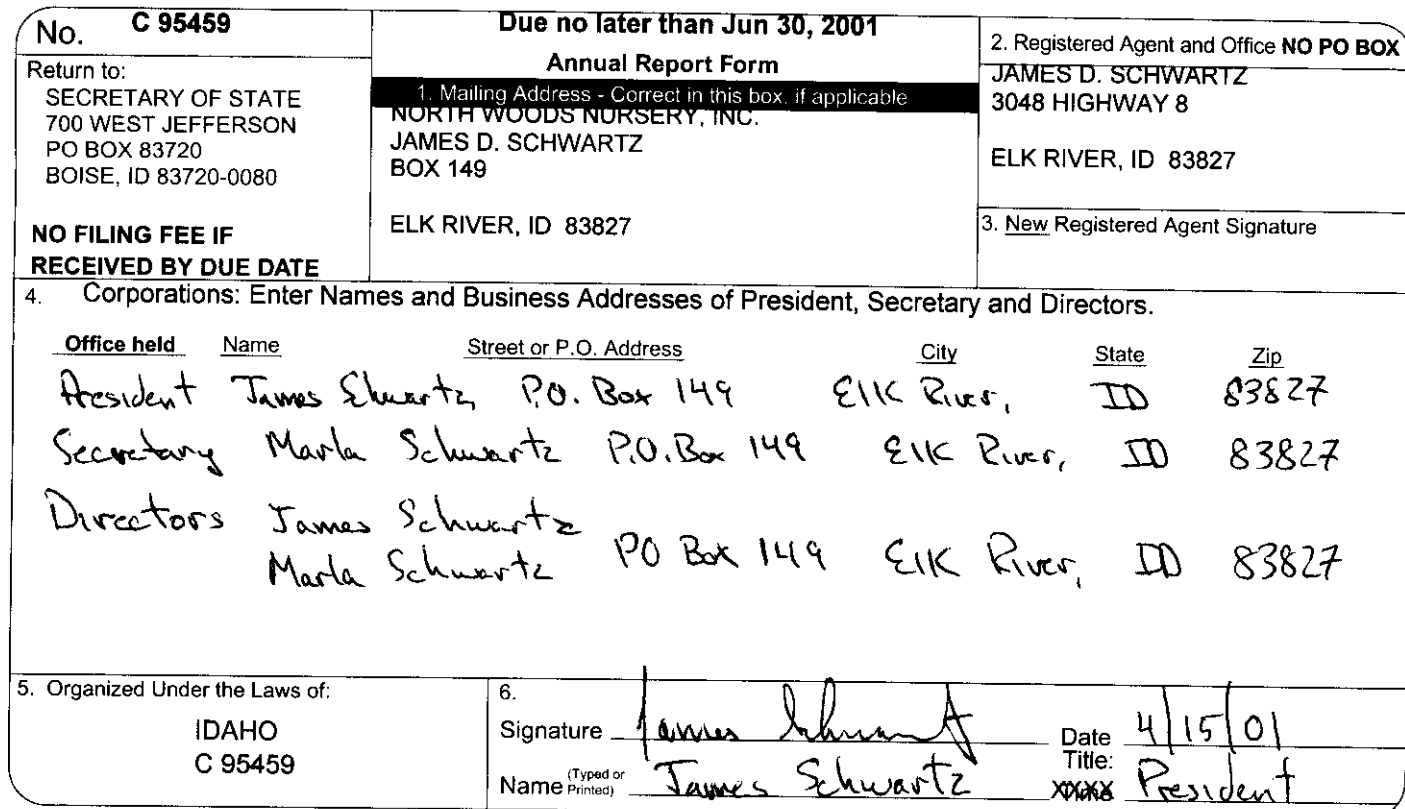 No. C 95459
Return to:
SECRETARY OF STATE
700 WEST JEFFERSON
PO BOX 83720
BOISE, ID 83720-0080
NO FILING FEE IF
RECEIVED BY DUE DATE
Due no later than Jun 30, 2001
Annual Report Form
1. Mailing Address - Correct in this box, if applicable
NORTH WOODS NURSERY, INC.
JAMES D. SCHWARTZ
BOX 149
ELK RIVER, ID 83827
2. Registered Agent and Office NO PO BOX
JAMES D. SCHWARTZ
3048 HIGHWAY 8
ELK RIVER, ID 83827
3. New Registered Agent Signature
4. Corporations: Enter Names and Business Addresses of President, Secretary and Directors.
Office held Name Street or P.O. Address City State Zip
President James Shwartz P.O. Box 149 Elk River, ID 83827
Secretary Marla Schwartz P.O. Box 149 Elk River, ID 83827
Directors James Schwartz
Marla Schwartz PO Box 149 Elk River, ID 83827
5. Organized Under the Laws of:
IDAHO
C 95459
6.
Signature James Schwartz Date 4/15/01
Name (Typed or Printed) James Schwartz Title: President